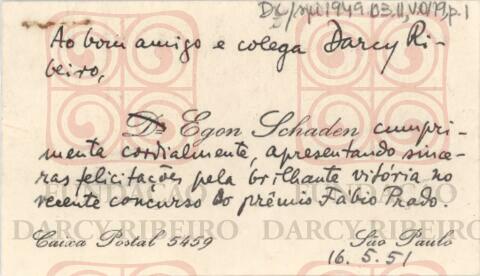 DR/spi 1949.03.11, V.0179, p.1
Ao bom amigo e colega Darcy Ri-
beiro,
Dr Egon Schaden cumpri-
menta cordialmente, apresentando since-
ras felicitações pela brilhante vitória no
recente concurso do prêmio Fábio Prado.
FUNDAÇÃO FUNDAÇÃO
DARCY RIBEIRO DARCY RIBEIRO
Caixa Postal 5459 São Paulo
16.5.51